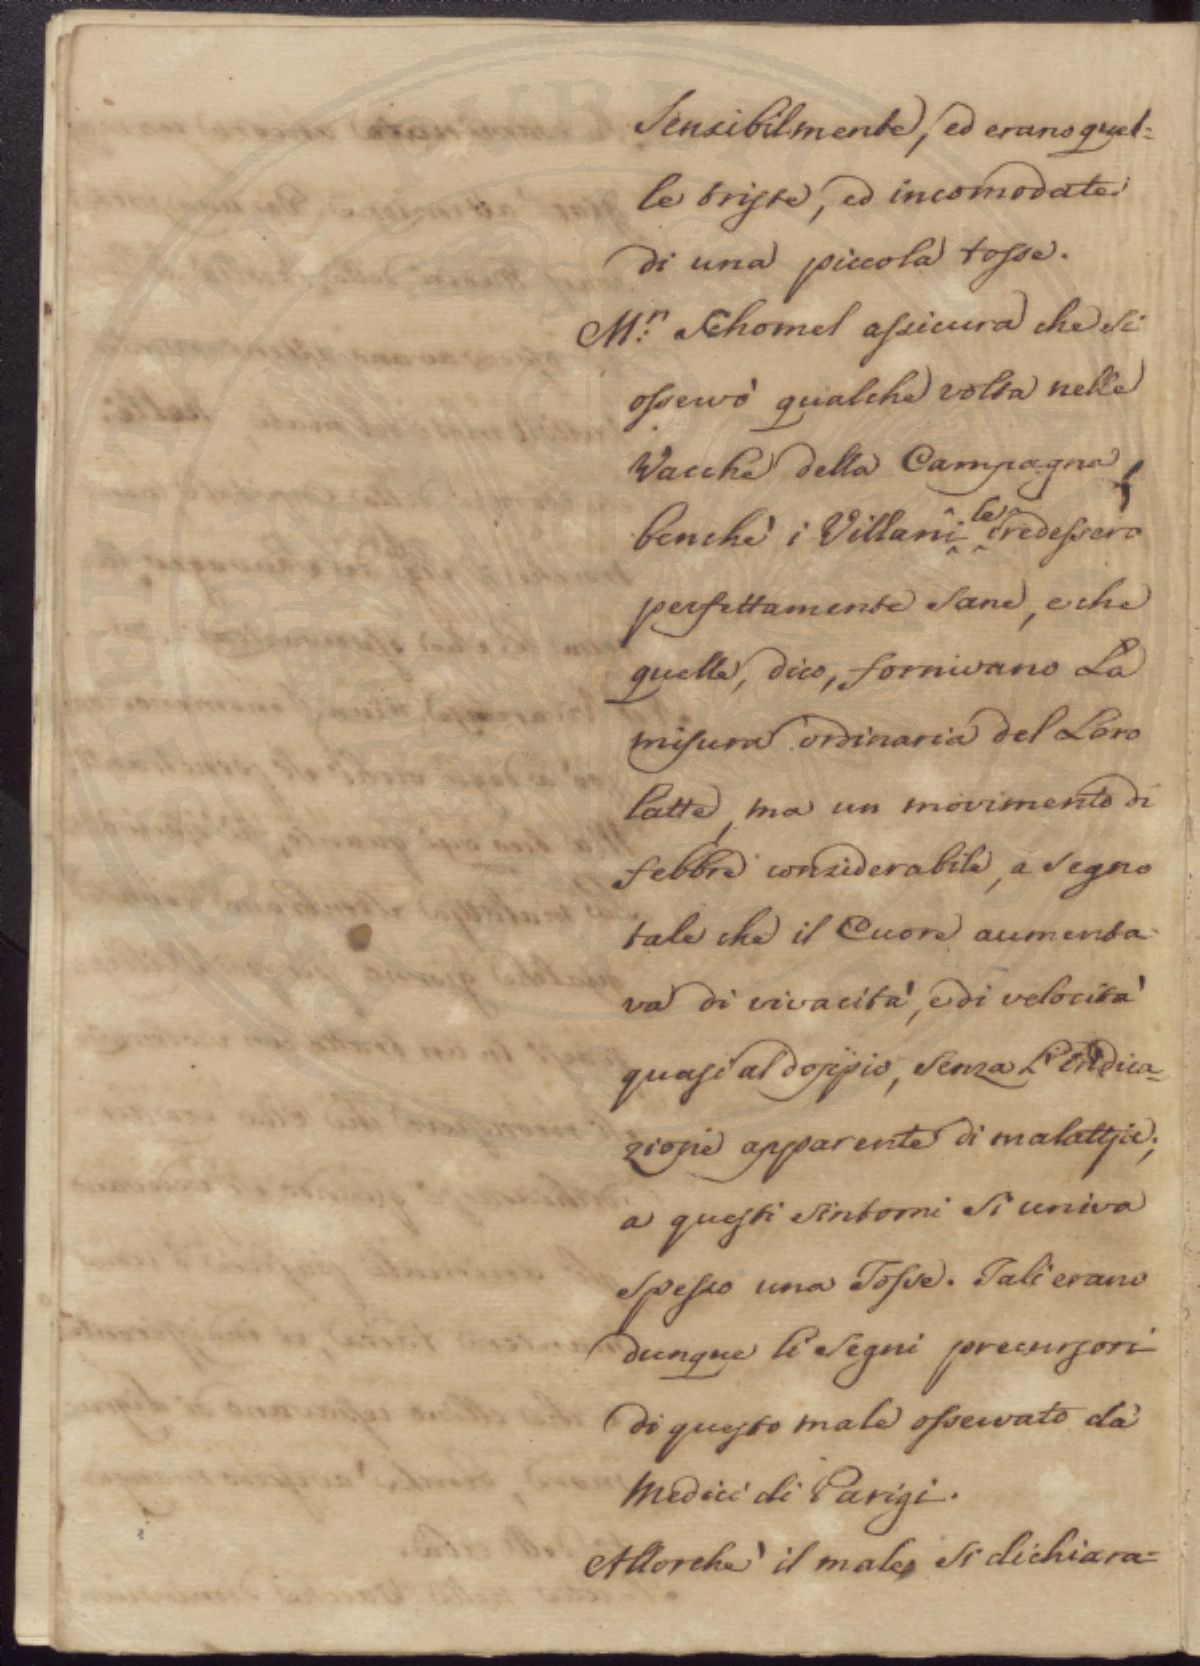 Sensibilmente, ed erano quel=
le triste, ed incomodate
di una piccola tosse.
M.r Schomel assicura che si
osservò qualche volta nelle
Vacche della Campagna,
benchè i Villani le credessero
perfettamente sane, e che
quelle, dico, fornivano La
misura ordinaria del Loro
latte, ma un movimento di
febbre considerabile, a segno
tale che il Cuore aumenta
va di vivacità, e di velocità
quasi al doppio, senza L'indica=
zione apparente di malattje;
a questi sintomi si univa
spesso una Tosse. Tali erano
dunque li segni precursori
di questo male osservato da
Medici di Parigi.
Allorchè il male si dichiara=